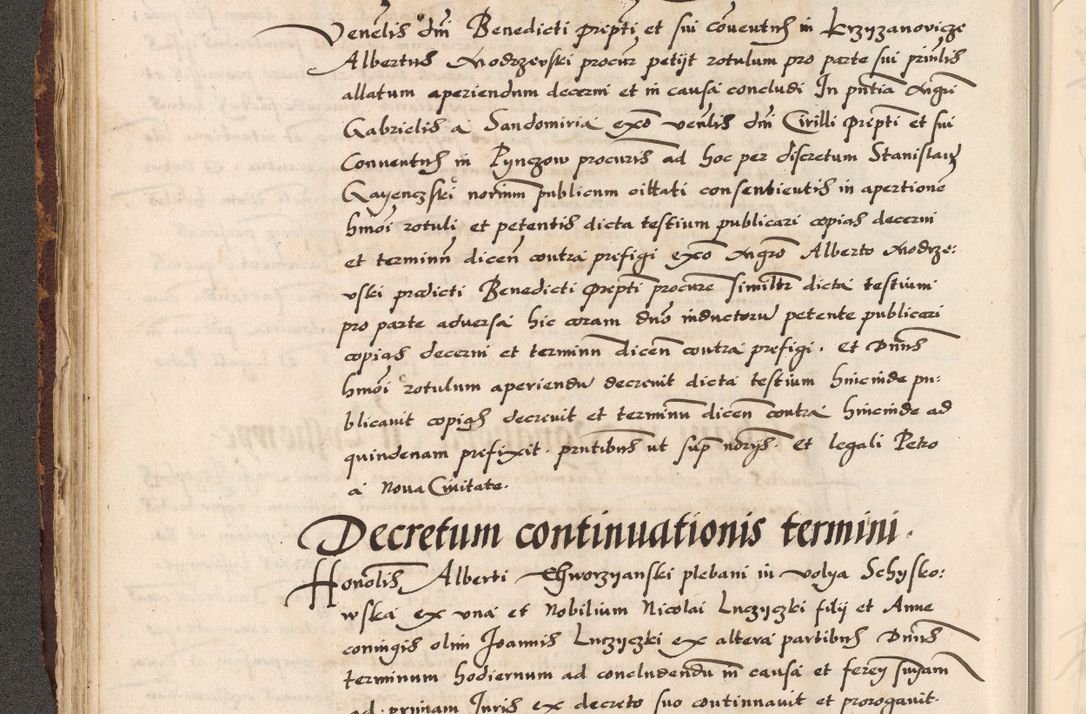 Venelis dni Benedicti prepti et sui coventus in Krzyzanovicze
Albertus Modrzevski procur petijt rotulum pro parte sui prinlis
allatum aperiendum decerni et in causa concludi In pntia Mgri
Gabrielis a Sandomiria exo venlis dni Cirilli prepti et sui
Conventus in Pynczow procuris ad hoc per discretum Stanislaum
Gayenczski norium publicum citati consentientis in apertione
hmoi rotuli et petentis dicta testium publicari copias decerni
et terminu dicen contra prefigi exo Mgro Alberto Modrze:
vski predicti Benedicti prepti procure similtr dicta testium
pro parte adversa hic coram dno inductoru petente publicari
copias decerni et terminu dicen contra prefigi. Et Dnus
hmoi rotulum aperiendu decrevit dicta testium hincinde pu:
blicavit copias decrevit et terminu dicen contra hincinde ad
quindenam prefixit. pntibus ut sup norijs. Et legali Petro
a Nova Civitate.
Decretum continuationis termini.
Honolis Alberti Chworzyanski plebani in Volya Schysko:
wska ex una et Nobilium Nicolai Luczyczki filij et Anne
coniugis olim Joannis Luczyczki ex altera partibus Dnus
terminum hodiernum ad concludendu in causa et ferey
ad primam Juris ex decreto suo continuavit et prorogavit.